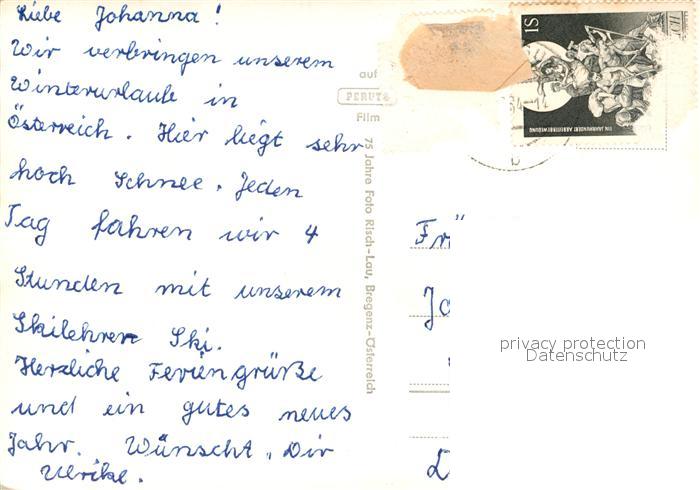 Liebe Johanna!
Wir verbringen unserem
Winterurlaub in
Österreich. Hier liegt sehr
hoch Schnee. Jeden
Tag fahren wir 4
Stunden mit unserem
Skilehrer Ski.
Herzliche Feriengrüße
und ein gutes neues
Jahr. Wünscht, Dir
Ulrike.
auf
PERUTZ
Film
75 Jahre Foto Risch-Lau, Bregenz-Österreich
1S
EIN JAHRHUNDERT ARBEITERBEWEGUNG
Frä
Ja
privacy protection
Datenschutz